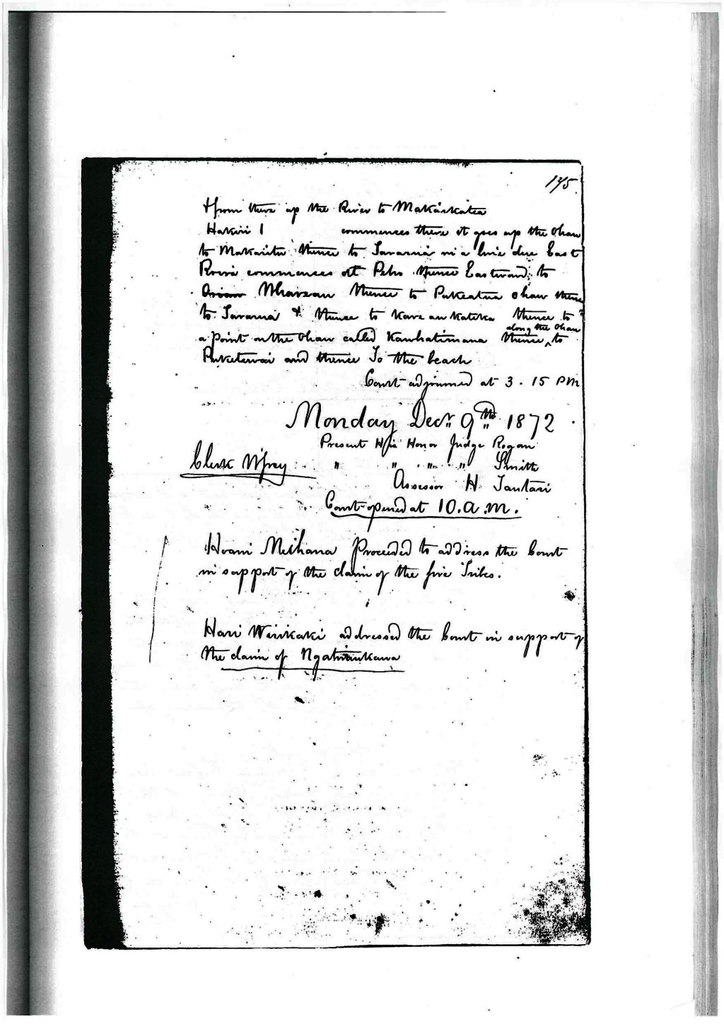 175.
& from there up the River to Makaikatea
Hakiri 1 commences there it goes up the Ohau
to Makaretu thence to Tararua in a line due East
Rorii commences at Peho thence Eastward to
Oriau Whareau thence to Pukeatua Ohau thence
to Tararua & thence to Kare au Kateka thence to
along the Ohau
a point on the Ohau called Kauhatimana thence ^ to
Puketurai and thence To the beach
Court adjourned at 3.15 PM
Monday Decr. 9th 1872
Present His Honor Judge Rogan
Clerk Wfrey " " " " Smith
Assessor H. Tautari
Court opened at 10.a.m.
Hoani Meihana Proceeded to address the Court
in support of the claim of the five Tribes.
Hari Wirikaki addressed the Court in support of
the claim of Ngatiraukawa